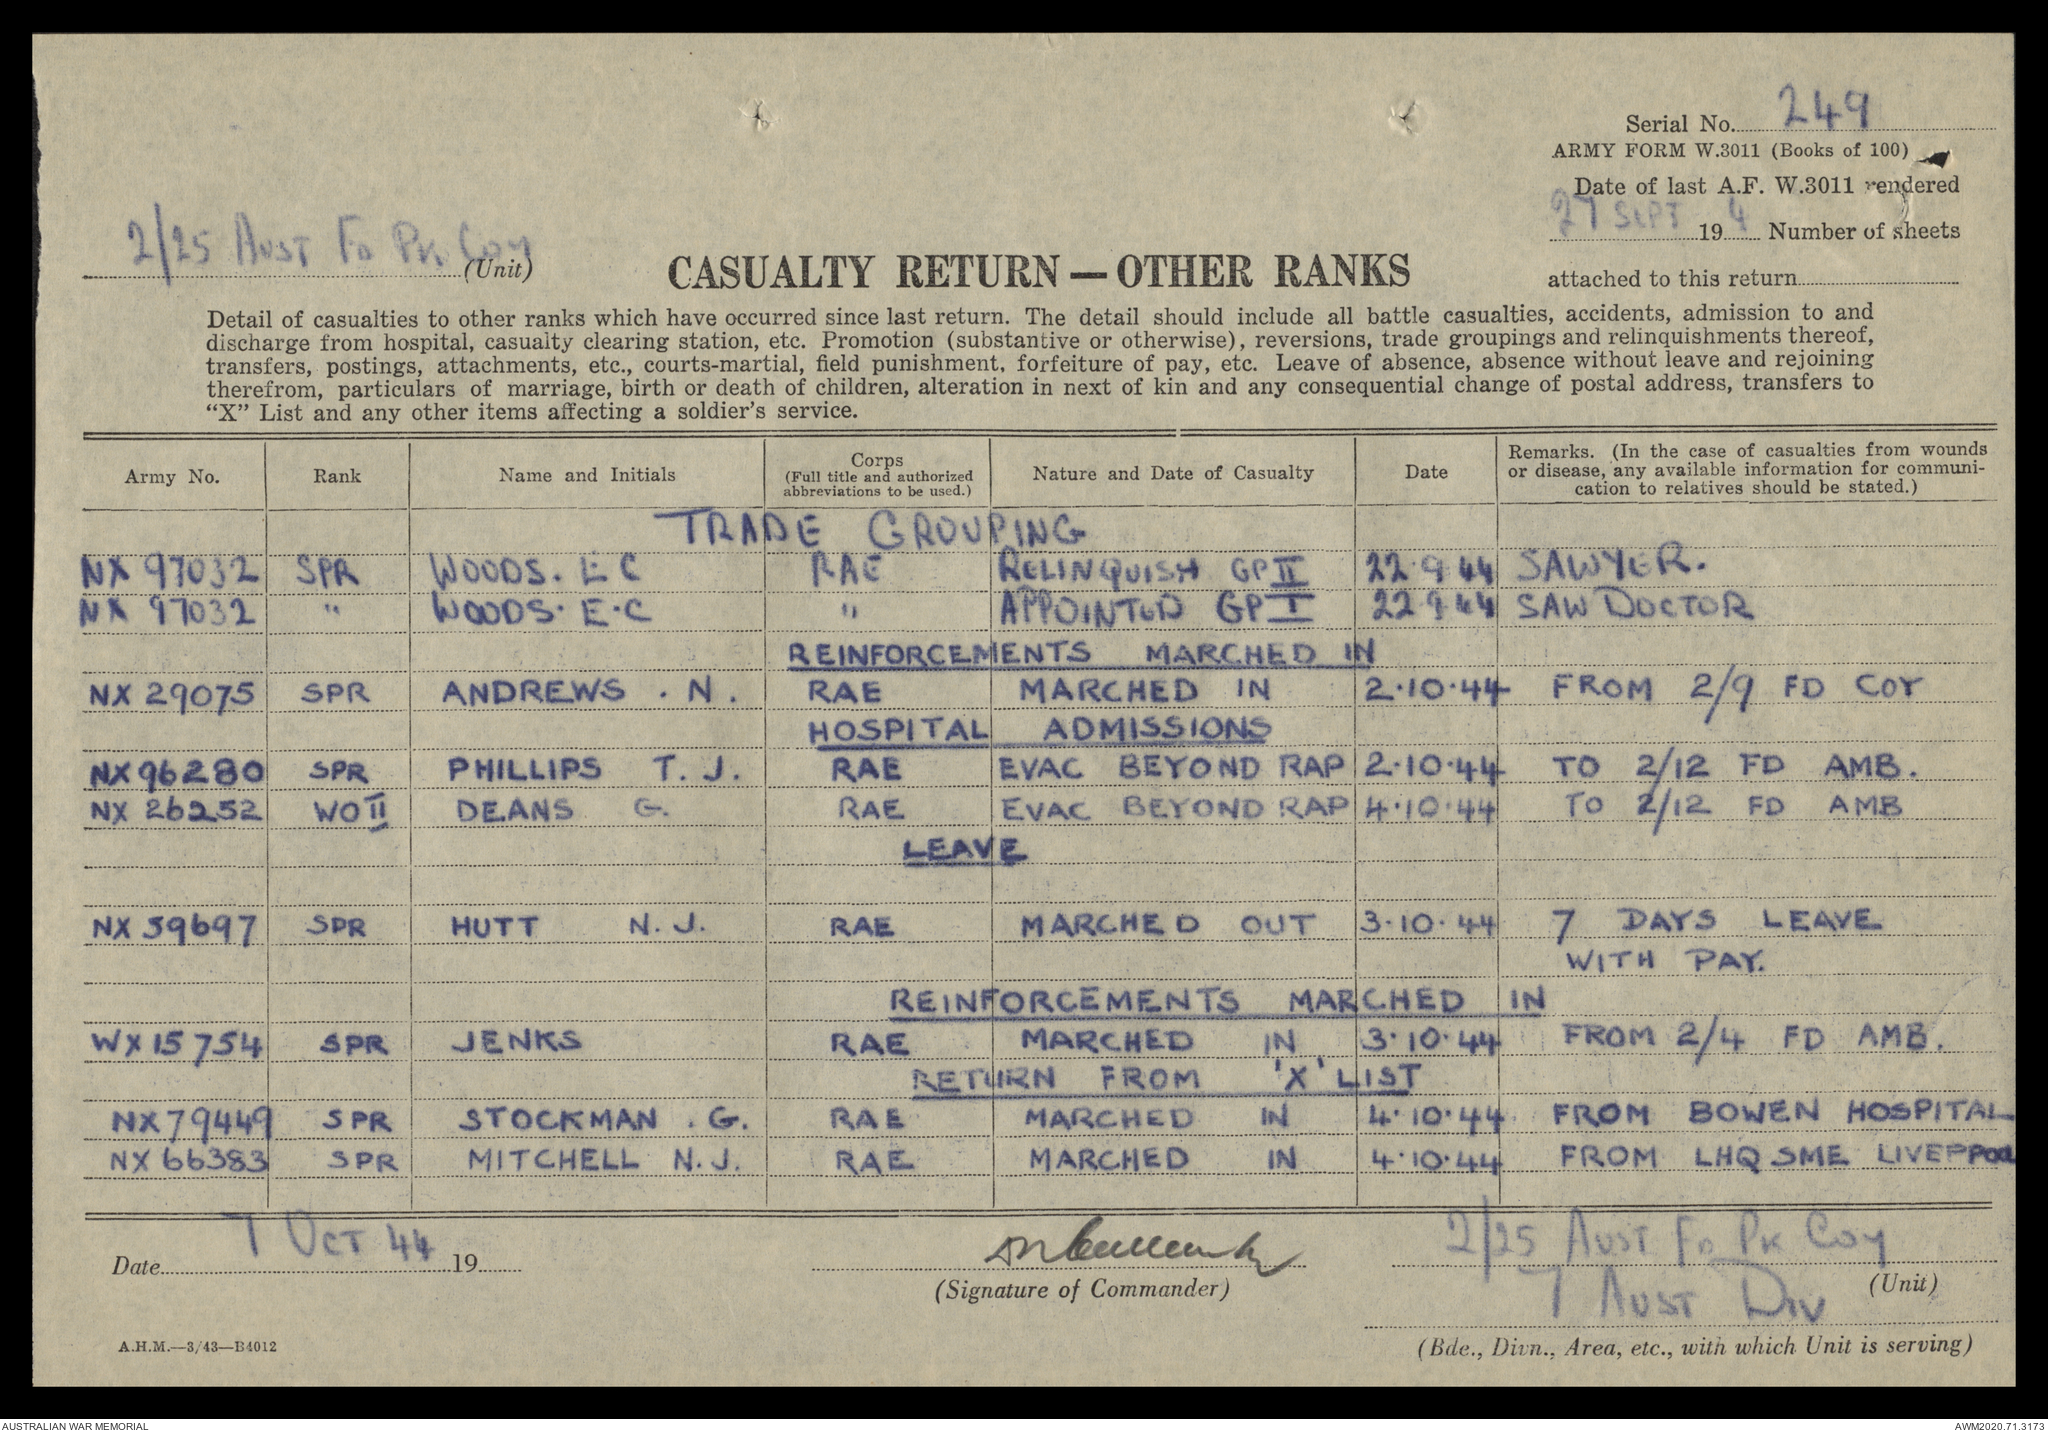 Serial No. 249
ARMY FORM W.3011 (Books of 100)
Date of last A.F. W.3011 rendered
27 SEPT 19 4 Number of sheets
attached to this return
2/25 AUST FD PK COY (Unit)
CASUALTY RETURN — OTHER RANKS
Detail of casualties to other ranks which have occurred since last return. The detail should include all battle casualties, accidents, admission to and
discharge from hospital, casualty clearing station, etc. Promotion (substantive or otherwise), reversions, trade groupings and relinquishments thereof,
transfers, postings, attachments, etc., courts-martial, field punishment, forfeiture of pay, etc. Leave of absence, absence without leave and rejoining
therefrom, particulars of marriage, birth or death of children, alteration in next of kin and any consequential change of postal address, transfers to
"X" List and any other items affecting a soldier's service.
Army No. Rank Name and Initials Corps (Full title and authorized abbreviations to be used.) Nature and Date of Casualty Date Remarks. (In the case of casualties from wounds or disease, any available information for communi-cation to relatives should be stated.)
TRADE GROUPING
NX 97032 SPR WOODS. E C RAE RELINQUISH GP II 22.9.44 SAWYER.
NX 97032 " WOODS. E.C " APPOINTED GP I 22.9.44 SAW DOCTOR
REINFORCEMENTS MARCHED IN
NX 29075 SPR ANDREWS . N. RAE MARCHED IN 2.10.44 FROM 2/9 FD COY
HOSPITAL ADMISSIONS
NX 96280 SPR PHILLIPS T. J. RAE EVAC BEYOND RAP 2.10.44 TO 2/12 FD AMB.
NX 26252 WO II DEANS G. RAE EVAC BEYOND RAP 4.10.44 TO 2/12 FD AMB
LEAVE
NX 59697 SPR HUTT N. J. RAE MARCHED OUT 3.10.44 7 DAYS LEAVE
WITH PAY.
REINFORCEMENTS MARCHED IN
WX 15754 SPR JENKS RAE MARCHED IN 3.10.44 FROM 2/4 FD AMB.
RETURN FROM 'X' LIST
NX 79449 SPR STOCKMAN . G. RAE MARCHED IN 4.10.44 FROM BOWEN HOSPITAL
NX 66383 SPR MITCHELL N. J. RAE MARCHED IN 4.10.44 FROM LHQ SME LIVERPOOL
Date 7 OCT 44 19
(Signature of Commander)
2/25 AUST FD PK COY
(Unit)
7 AUST DIV
(Bde., Divn., Area, etc., with which Unit is serving)
A.H.M.—3/43—B4012
AUSTRALIAN WAR MEMORIAL
AWM2020.71.3173